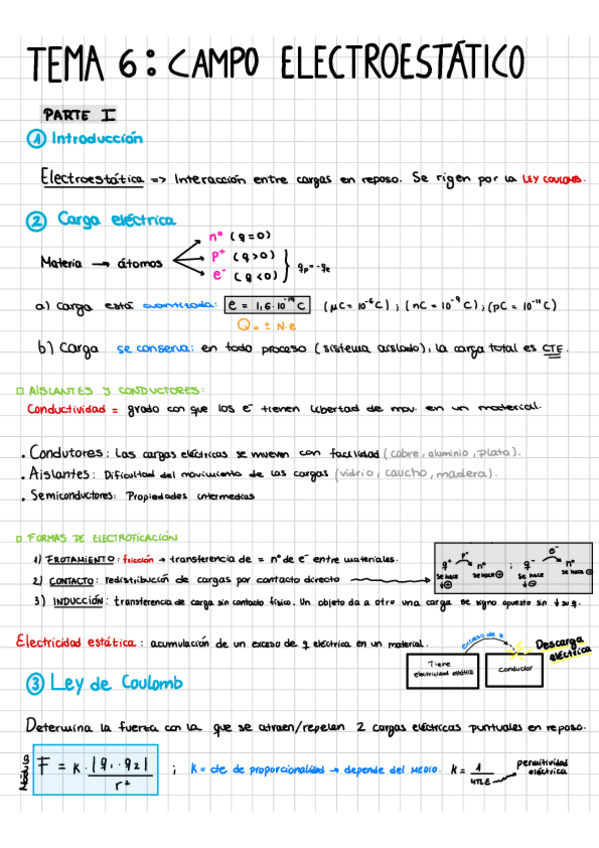 TEMA 6: CAMPO ELECTROESTÁTICO
PARTE I
① Introducción
Electroestática => Interacción entre cargas en reposo. Se rigen por la LEY COULOMB.
② Carga eléctrica
Materia → átomos
n° (q=0)
p⁺ (q>0)
e⁻ (q<0)
qp = -qe
a) Carga está cuantizada: e = 1,6·10⁻¹⁹ C (μC = 10⁻⁶ C) ; (nC = 10⁻⁹ C) ; (pC = 10⁻¹² C)
Q = ± N·e
b) Carga se conserva: en todo proceso (sistema aislado), la carga total es CTE.
AISLANTES Y CONDUCTORES:
Conductividad = grado con que los e⁻ tienen libertad de mov. en un material.
. Condutores: Las cargas eléctricas se mueven con facilidad (cobre, aluminio, plata).
. Aislantes: Dificultad del movimiento de las cargas (vidrio, caucho, madera).
. Semiconductores: Propiedades intermedias
FORMAS DE ELECTROTICACIÓN
1) FROTAMIENTO: fricción → transferencia de = n° de e⁻ entre materiales.
2) CONTACTO: redistribución de cargas por contacto directo
3) INDUCCIÓN: transferencia de carga sin contacto físico. Un objeto da a otro una carga de signo opuesto sin ↓ su q.
q⁺ p⁺ n° ; q⁻ e⁻ n°
se hace ↓⊕ se hace ⊕ se hace ↓⊖ se hace ⊖
Electricidad estática: acumulación de un exceso de q eléctrica en un material.
exceso de q
Descarga eléctrica
Tiene electricidad estática
conductor
③ Ley de Coulomb
Determina la fuerza con la que se atraen/repelen 2 cargas eléctricas puntuales en reposo.
Módulo
F = K · |q₁ · q₂| / r²
; K = cte de proporcionalidad → depende del MEDIO. K = 1 / 4πε
permitividad eléctrica